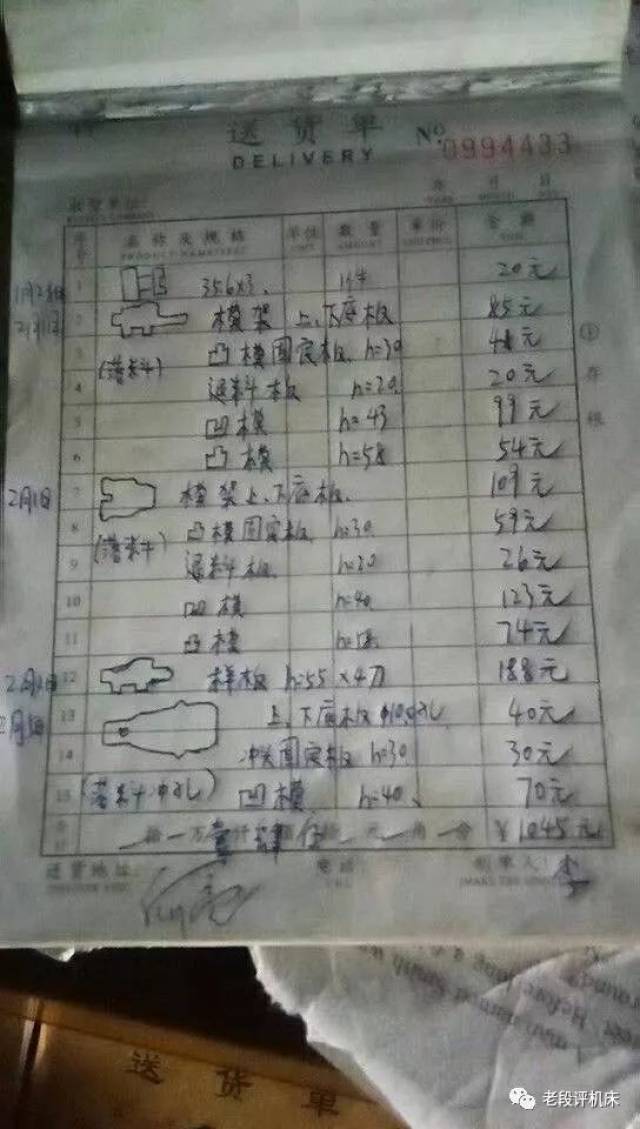 送货单 No 0994433
DELIVERY
收货单位:
年 月 日
序号 名称及规格 单位 数量 单价 金额
1 356×3、 1件 20元
2 模架 上、下底板 85元
3 (落料) 凸模固定板 h=30 48元
4 退料板 h=20 20元
5 凹模 h=43 99元
6 凸模 h=58 54元
2月1日 7 模架上、下底板、 109元
8 凸模固定板 h=30 59元
9 (落料) 退料板 h=20 26元
10 凹模 h=40 123元
11 凸模 74元
12 样板 h=55×4刀 188元
13 上、下底板 40元
14 固定板 h=30 30元
15 (落料冲孔) 凹模 h=40、 70元
合计 拾 万 仟 元 角 分 ¥1045元
送货地址: 电话: 制单人: 李
① 存根
送货单
老段评机床